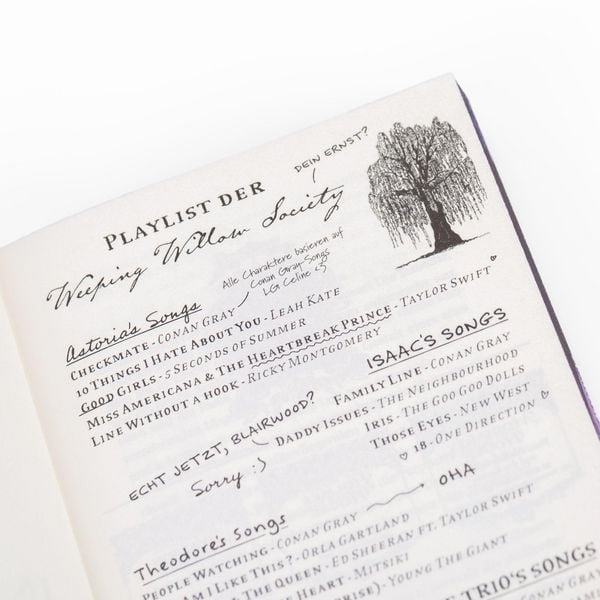 DEIN ERNST?
PLAYLIST DER
Weeping Willow Society
Alle Charaktere basieren auf
Conan Gray-Songs
LG Celine <3
Astoria's Songs
CHECKMATE - CONAN GRAY
10 THINGS I HATE ABOUT YOU - LEAH KATE
GOOD GIRLS - 5 SECONDS OF SUMMER
MISS AMERICANA & THE HEARTBREAK PRINCE - TAYLOR SWIFT
LINE WITHOUT A HOOK - RICKY MONTGOMERY
ISAAC'S SONGS
FAMILY LINE - CONAN GRAY
DADDY ISSUES - THE NEIGHBOURHOOD
IRIS - THE GOO GOO DOLLS
THOSE EYES - NEW WEST
18 - ONE DIRECTION
ECHT JETZT, BLAIRWOOD?
Sorry :)
OHA
Theodore's Songs
PEOPLE WATCHING - CONAN GRAY
AM I LIKE THIS? - ORLA GARTLAND
THE QUEEN - ED SHEERAN FT. TAYLOR SWIFT
HEART - MITSKI
RISE) - YOUNG THE GIANT
TRIO'S SONGS